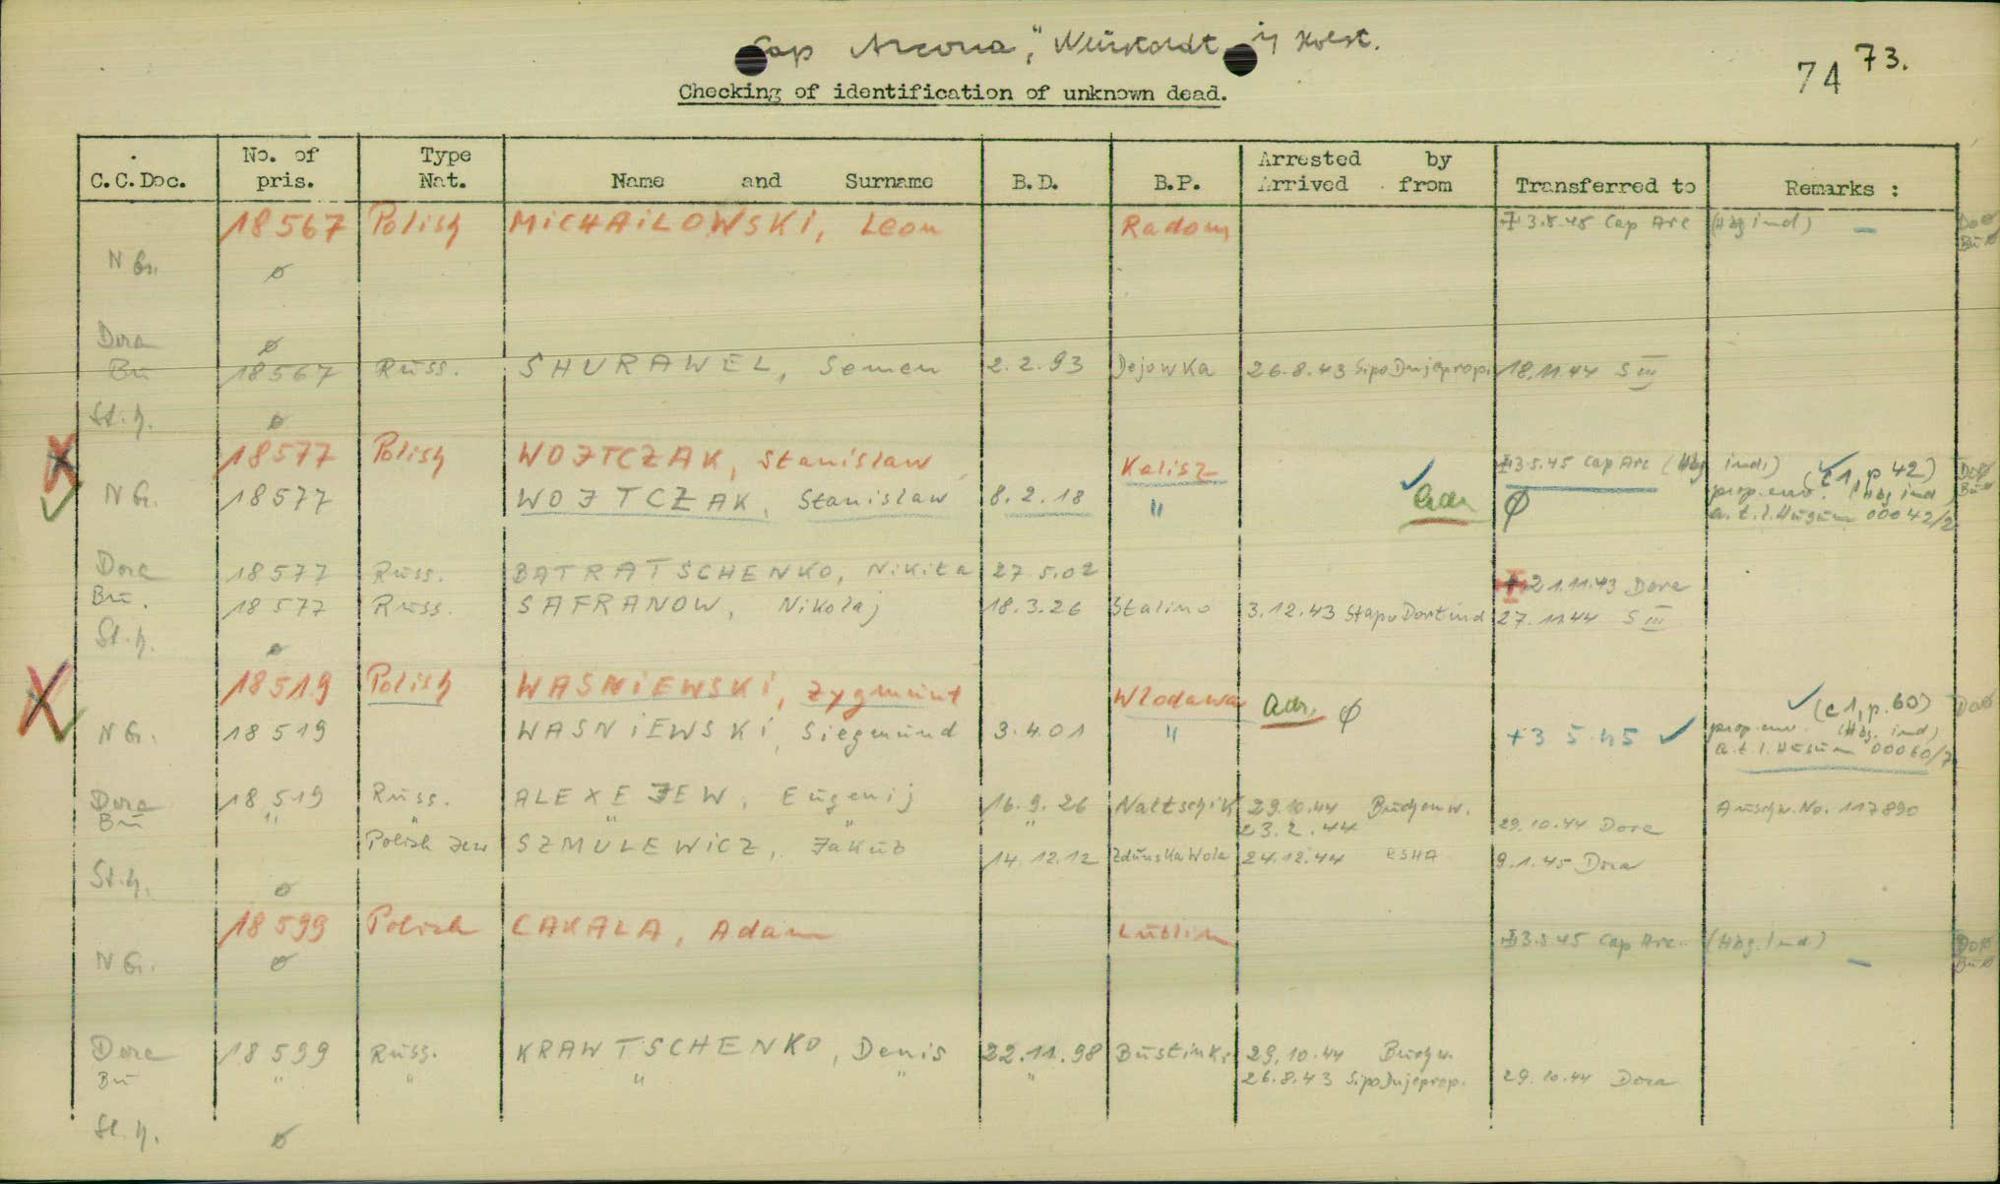 "Cap Arcona", Neustadt i/ Holst.
74 73.
Checking of identification of unknown dead.
C.C.Doc. No. of pris. Type Nat. Name and Surname B.D. B.P. Arrested by Arrived from Transferred to Remarks :
18567 Polish MICHAILOWSKI, Leon Radom 3.5.45 Cap Arc (Hbg ind) –
N G. ø
Dora ø
Bu 18567 Russ. SHURAWEL, Semen 2.2.93 Dejowka 26.8.43 Sipo Dnjeprop. 18.11.44 S III
St.h. ø
18577 Polish WOJTCZAK, Stanislaw Kalisz 3.5.45 Cap Arc (Hbg ind) (c1, p 42)
N G. 18577 WOJTCZAK, Stanislaw 8.2.18 " adr. ø prop. env. (Hbg ind)
a.t.l. Husum 00042/2
Dora 18577 Russ. BATRATSCHENKO, Nikita 27.5.02 21.11.43 Dora
Bu. 18577 Russ. SAFRANOW, Nikolaj 18.3.26 Stalino 3.12.43 Stapo Dortmund 27.11.44 S III
St.h. ø
18519 Polish WASNIEWSKI, Zygmunt Wlodawa adr. ø (c1, p.60)
N G. 18519 WASNIEWSKI, Siegmund 3.4.01 " +3 5 45 prop. env. (Hbg. ind)
a.t.l. Husum 00060/7
Dora 18519 Russ. ALEXEJEW, Eugenij 16.9.26 Naltschik 29.10.44 Buchenw. Auschw. No. 117890
Bu " " " " " 23.2.44 29.10.44 Dora
Polish Jew SZMULEWICZ, Jakub 14.12.12 Zdunska Wola 24.12.44 RSHA 9.1.45 Dora
St.h. ø
18599 Polish CAKALA, Adam Lublin 3.5.45 Cap Arc. (Hbg. ind) –
N G. ø
Dora 18599 Russ. KRAWTSCHENKO, Denis 22.11.98 29.10.44 Buchw.
Bu " " " " " 26.8.43 Sipo Dnjeprop. 29.10.44 Dora
St.h. ø